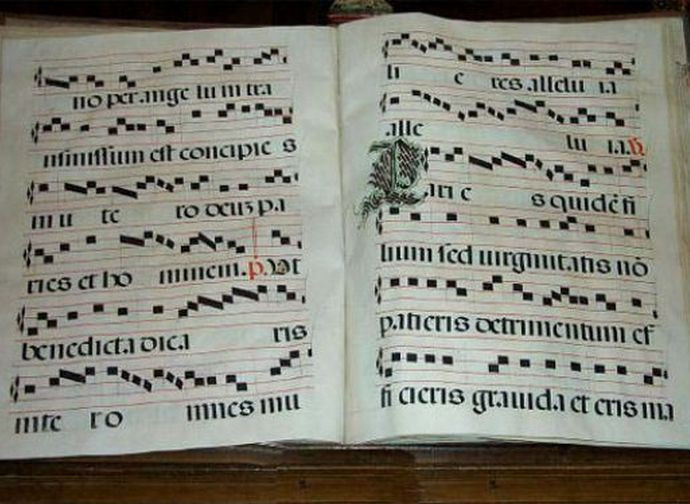 no per ange lum in tra
missum est concipie s
in u te ro deum pa
ries et ho minem. p. Vt
benedicta dica ris
inte r o mnes mu
li e res allelu ia
alle lu ia. R.
Parie s quidē fi
lium sed uirginitatis nō
patieris detrimentum ef
fi cieris grauida et eris ma